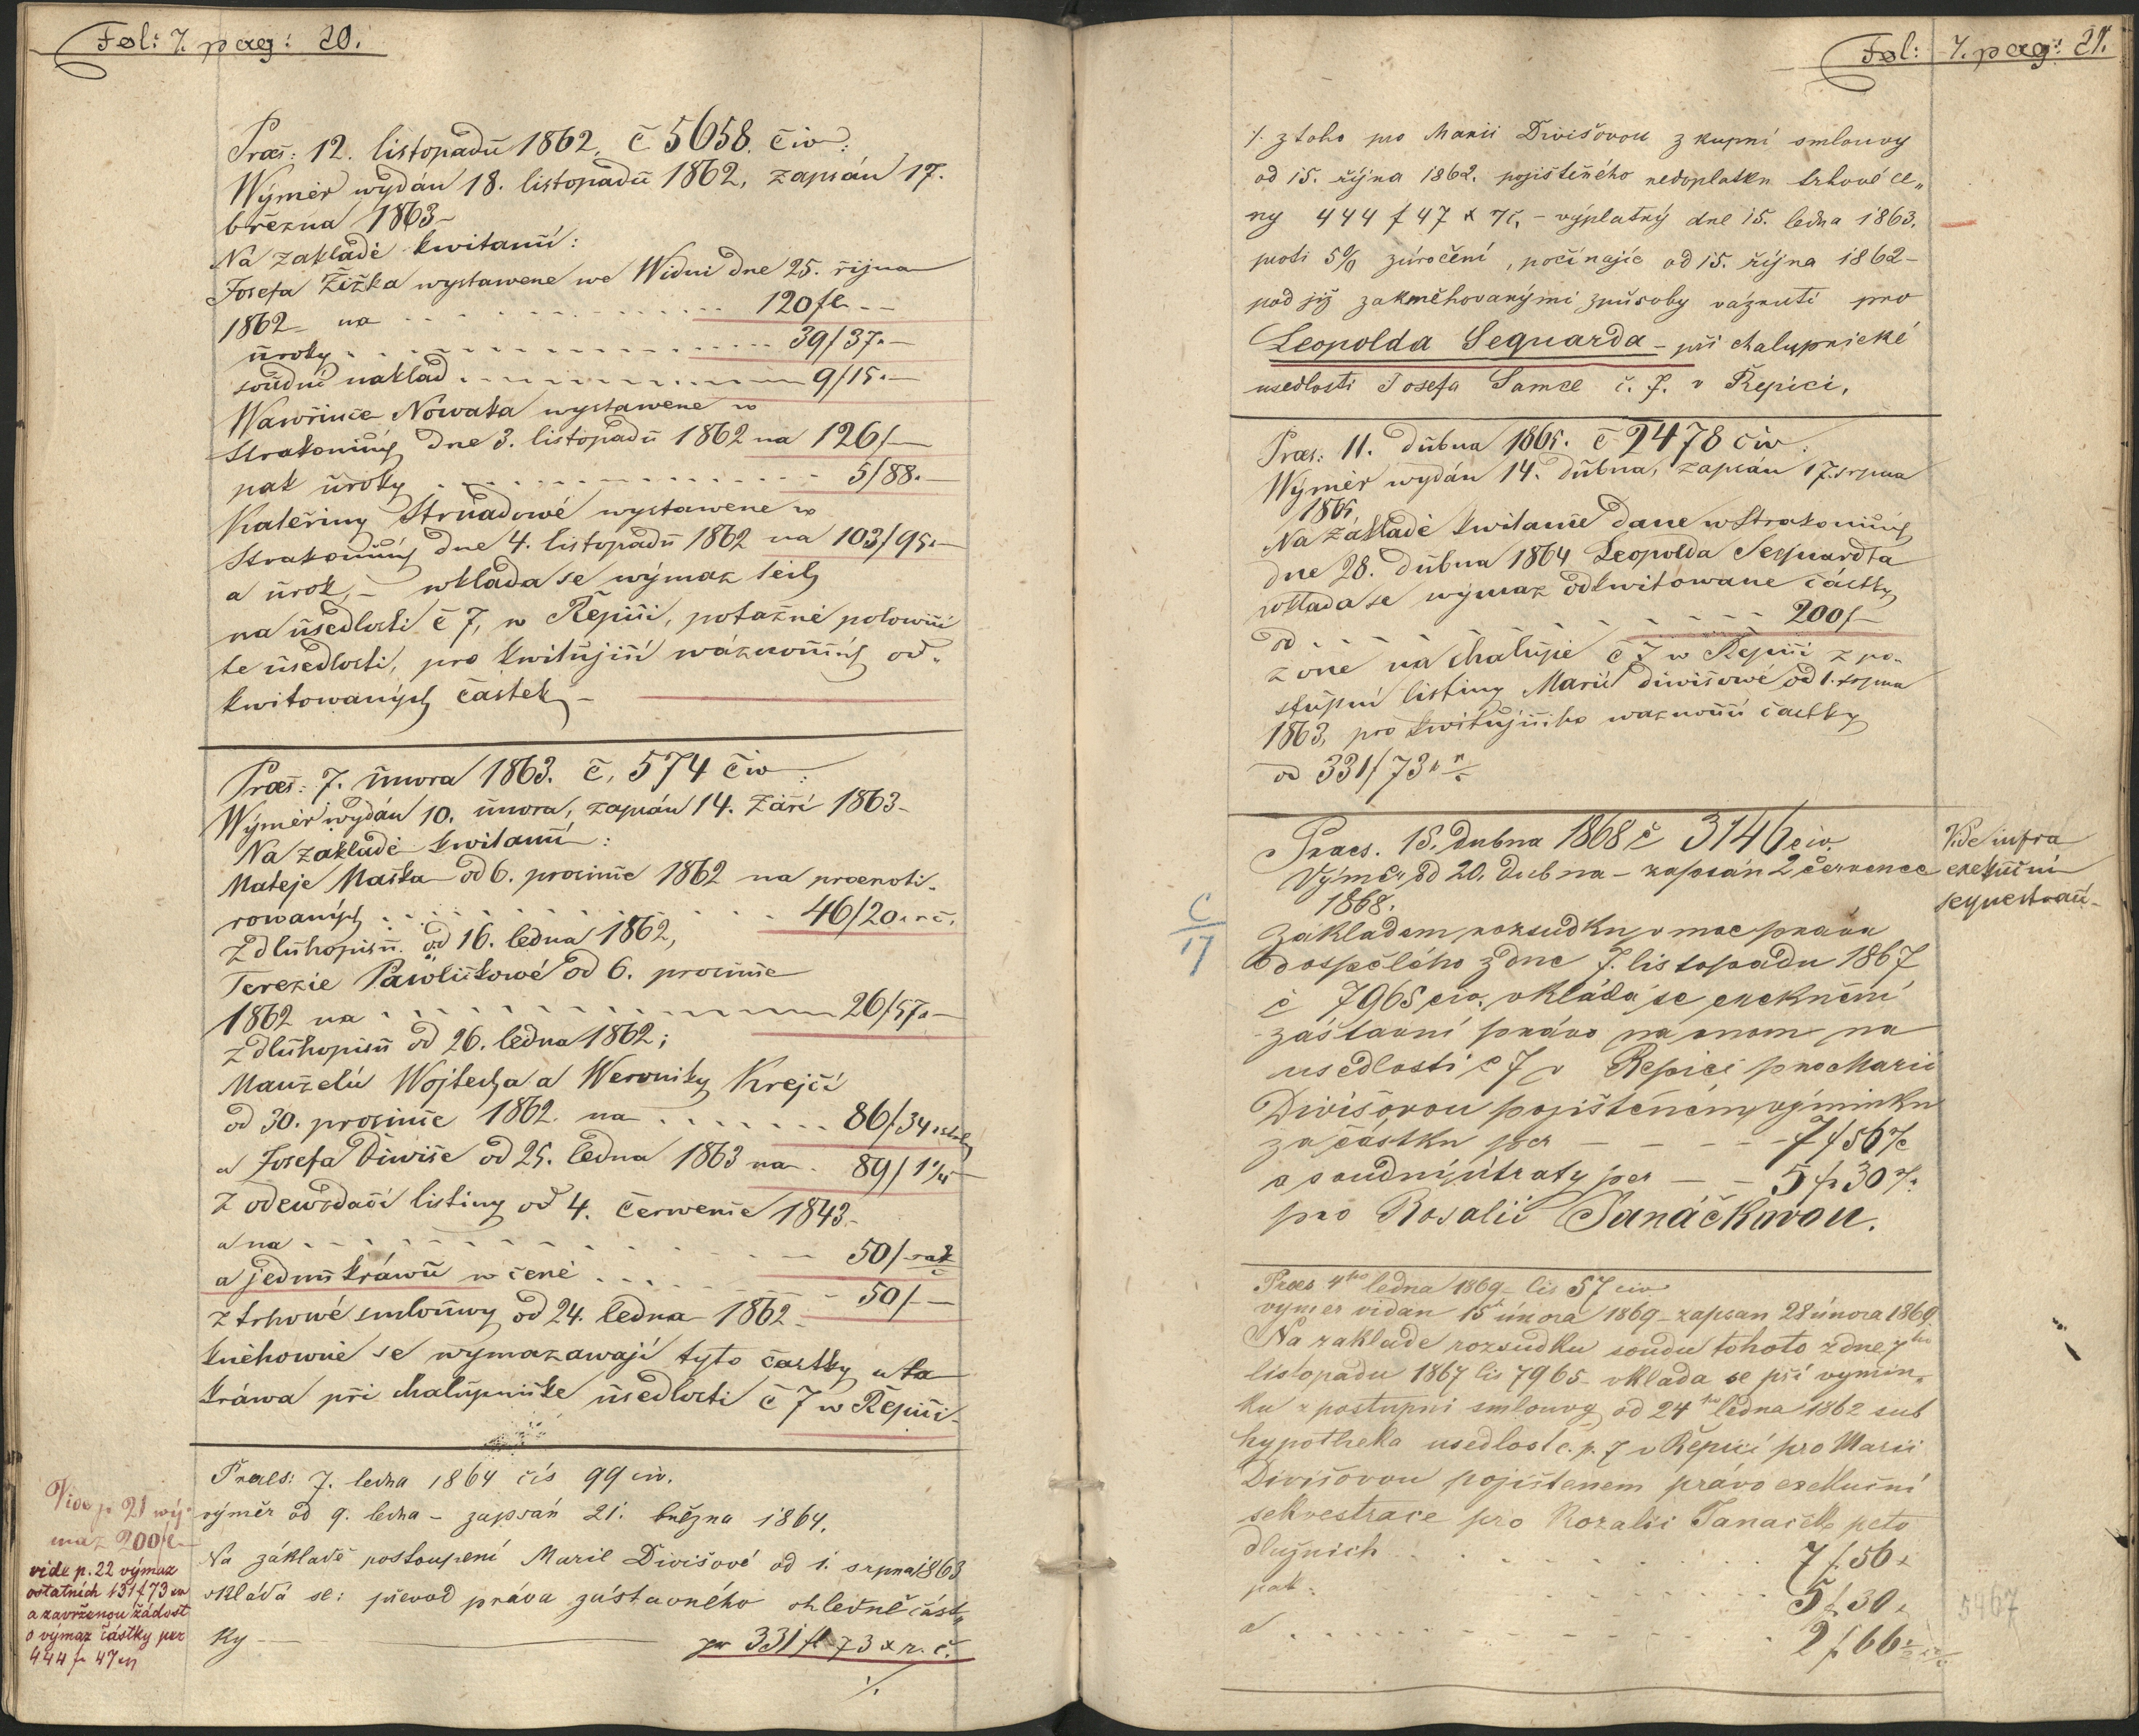 Fol: 7. pag: 20.
Præs: 12. listopadu 1862. č 5658. civ:
Wýměr wydán 18. listopadu 1862, zapsán 17.
března 1863–
Na zakladě kwitanií:
Josefa Žižka wystawene we Widni dne 25. října
1862– na . . . . . . 120 fl –
úroky . . . . . . 39 f 37. –
soudní naklad . . . . . . 9 f 15. –
Wawřince Nowaka wystawene w
Strakonicích dne 3. listopadu 1862 na 126 f –
pak úroky . . . . . . 5 f 88. –
Kateřiny Strnadowé wystawene w
Strakonicích dne 4. listopadu 1862 na 103 f 95. –
a úrok, – wklada se wýmaz těch
na usedlosti č 7, w Řepici, potažně polowici
te usedlosti, pro kwitující wáznoucích od-
kwitowaných částek –
Præs: 7. února 1863. č, 574 civ:
Wýměr wydán 10. února, zapsán 14. Září 1863–
Na zakladě kwitanií:
Mateje Maška od 6. prosince 1862 na praenoti-
rowaných . . . . . . 46 f 20 x r č.
Z dluhopisu od 16. ledna 1862,
Terezie Pawlickowé od 6. prosince
1862 na . . . . . . 26 f 57. –
z dluhopisu od 26. ledna 1862;
Manželů Wojtecha a Weroniky Krejčí
od 30. prosince 1862. na . . . . . . 86 f 34
a Josefa Diwiše od 25. ledna 1863 na . 89 f 1
Z odewzdací listiny od 4. Července 1843–
a na . . . . . . 50 f
a jednu kráwu w ceně . . . . . . 50 f –
z trhowé smlouwy od 24. ledna 1862–
knéhowně se wymazawají tyto častky a ta
kráwa při chalupnicke usedlosti č 7 w Řepici–
Praes: 7. ledna 1864 čís 99 civ.
výměr od 9. ledna – zapsán 21. března 1864.
Na základě postoupení Marie Divišové od 1. srpna 1863
vkládá se: převod práva zástavného ohledně část„
ky — per 331 fl 73 x r. č.
./.
Vide p. 21 wý-
maz 200 fl –
vide p. 22 výmaz
ostatních 131 f 73 xn
a zavrženou žádost
o výmaz částky per
444 f 47 xn
Fol: 7. pag: 21.
./. z toho pro Marii Divišovou z kupní smlouvy
od 15. října 1862. pojištěného nedoplatku trhové ce„
ny 444 f 47 x rč, – výplatný dne 15. ledna 1863.
proti 5% zúročení, počínajíc od 15. října 1862 –
pod již zakněhovanými způsoby váznutí pro
Leopolda Sequarda – při chalupnické
usedlosti Josefa Samce č. 7. v Řepici.
Præs: 11. dubna 1865. č 2478 civ:
Wýměr wydán 14. dubna, zapsán 17. srpna
1865
Na základě kwitance dane w Strakonicích
dne 28. dubna 1864 Leopolda Sequardta
wklada se wýmaz odkwitowane částky
od . . . . . . 200 f –
z oné na chalupě č 7 w Řepici z po-
stupní listiny Marie Diwišowé od 1. srpna
1863, pro kwitujícího waznoucí častky
od 331 f 73 x
Praes. 15. Dubna 1868 č 3146 civ.
Výměr od 20. Dubna – zapsán 2 července
1868.
Základem rozsudku v moc práva
dospělého z dne 7. listopadu 1867
č 7965 civ, vkládá se exekuční
zástavní právo na onom na
usedlosti č 7 v Řepici pro Marii
Divišovou pojištěném výminku
za částku per – – – – 7 f 56 x
a soudní útraty per – – 5 f 30 x
pro Rosalii Tanáčkovou.
Vide infra
exekuční
sequestraci–
C
17
Praes 4ho ledna 1869 – čis 57 civ
výměr vidan 15 února 1869 – zapsan 28 února 1869
Na zaklade rozsudku soudu tohoto z dne 7ho
listopadu 1867 čis 7965 vklada se při vymin„
ku z postupni smlouvy od 24ho ledna 1862 sub
hypotheka usedlost č. p. 7 v Řepici pro Marii
Divišovou pojištěnem právo exekuční
sekvestrace pro Rozalii Tanaček pcto
dlužnich . . . . . . 7 f 56 x
pak: . . . . . . 5 f 30 x
a . . . . . . 2 f 66
5467